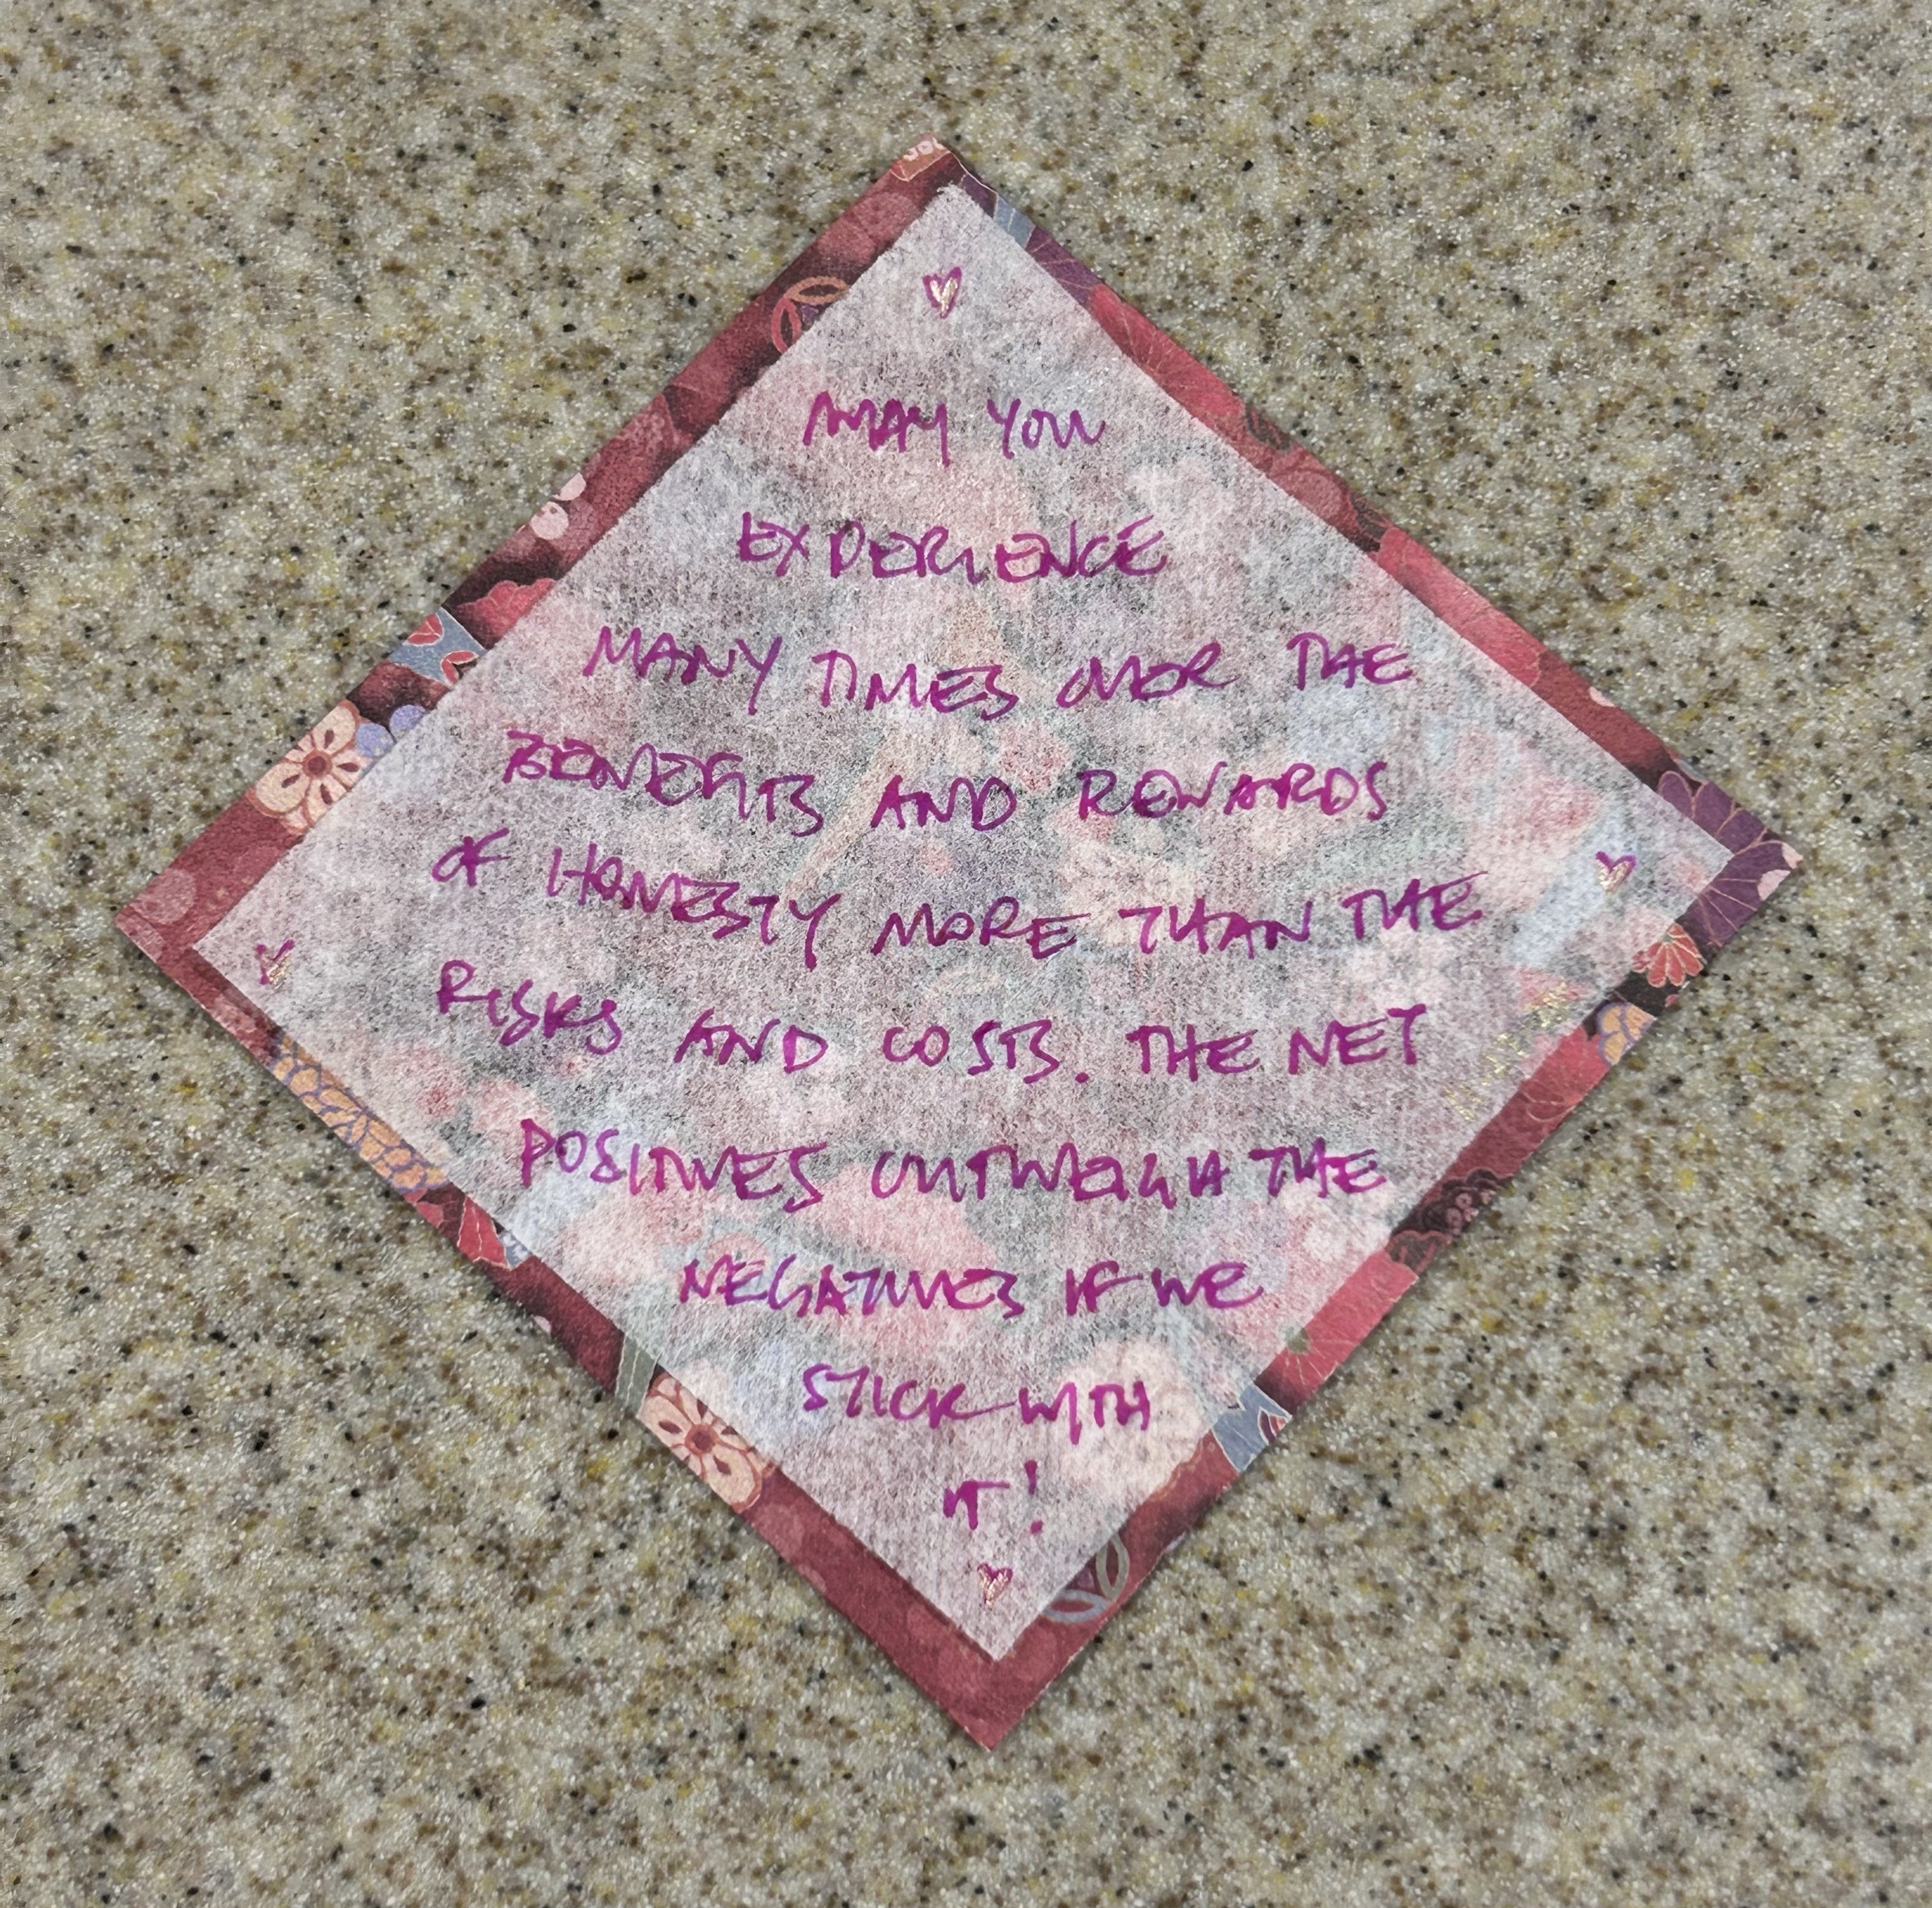 MAY YOU
EXPERIENCE
MANY TIMES OVER THE
BENEFITS AND REWARDS
OF HONESTY MORE THAN THE
RISKS AND COSTS. THE NET
POSITIVES OUTWEIGH THE
NEGATIVES IF WE
STICK WITH
IT!